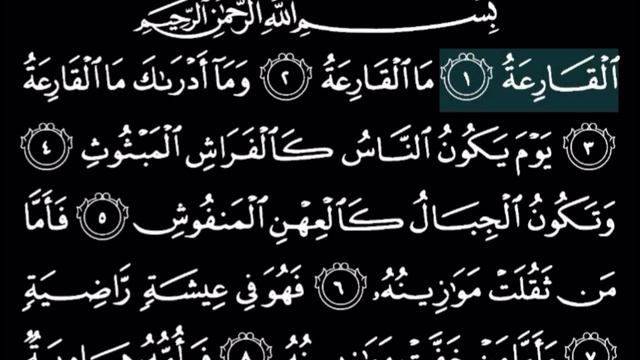 بِسْمِ ٱللَّهِ ٱلرَّحْمَٰنِ ٱلرَّحِيمِ
ٱلْقَارِعَةُ ١ مَا ٱلْقَارِعَةُ ٢ وَمَآ أَدْرَىٰكَ مَا ٱلْقَارِعَةُ
٣ يَوْمَ يَكُونُ ٱلنَّاسُ كَٱلْفَرَاشِ ٱلْمَبْثُوثِ ٤
وَتَكُونُ ٱلْجِبَالُ كَٱلْعِهْنِ ٱلْمَنفُوشِ ٥ فَأَمَّا
مَن ثَقُلَتْ مَوَٰزِينُهُۥ ٦ فَهُوَ فِى عِيشَةٍ رَّاضِيَةٍ
وَأَمَّا مَنْ خَفَّتْ مَوَٰزِينُهُۥ ٨ فَأُمُّهُۥ هَاوِيَةٌ